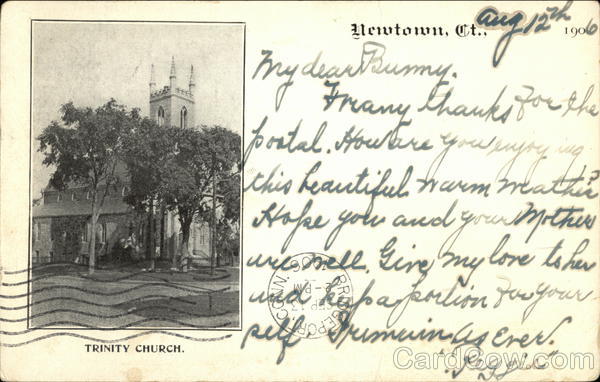 Newtown, Ct., Aug 12th 1906
My dear Bunny.
Many thanks for the
postal. How are you enjoying
this beautiful warm weather
Hope you and your Mother
are well. Give my love to her
and keep a portion for your-
self I remain As Ever.
TRINITY CHURCH.
BRIDGEPORT CONN.
CardCow.com